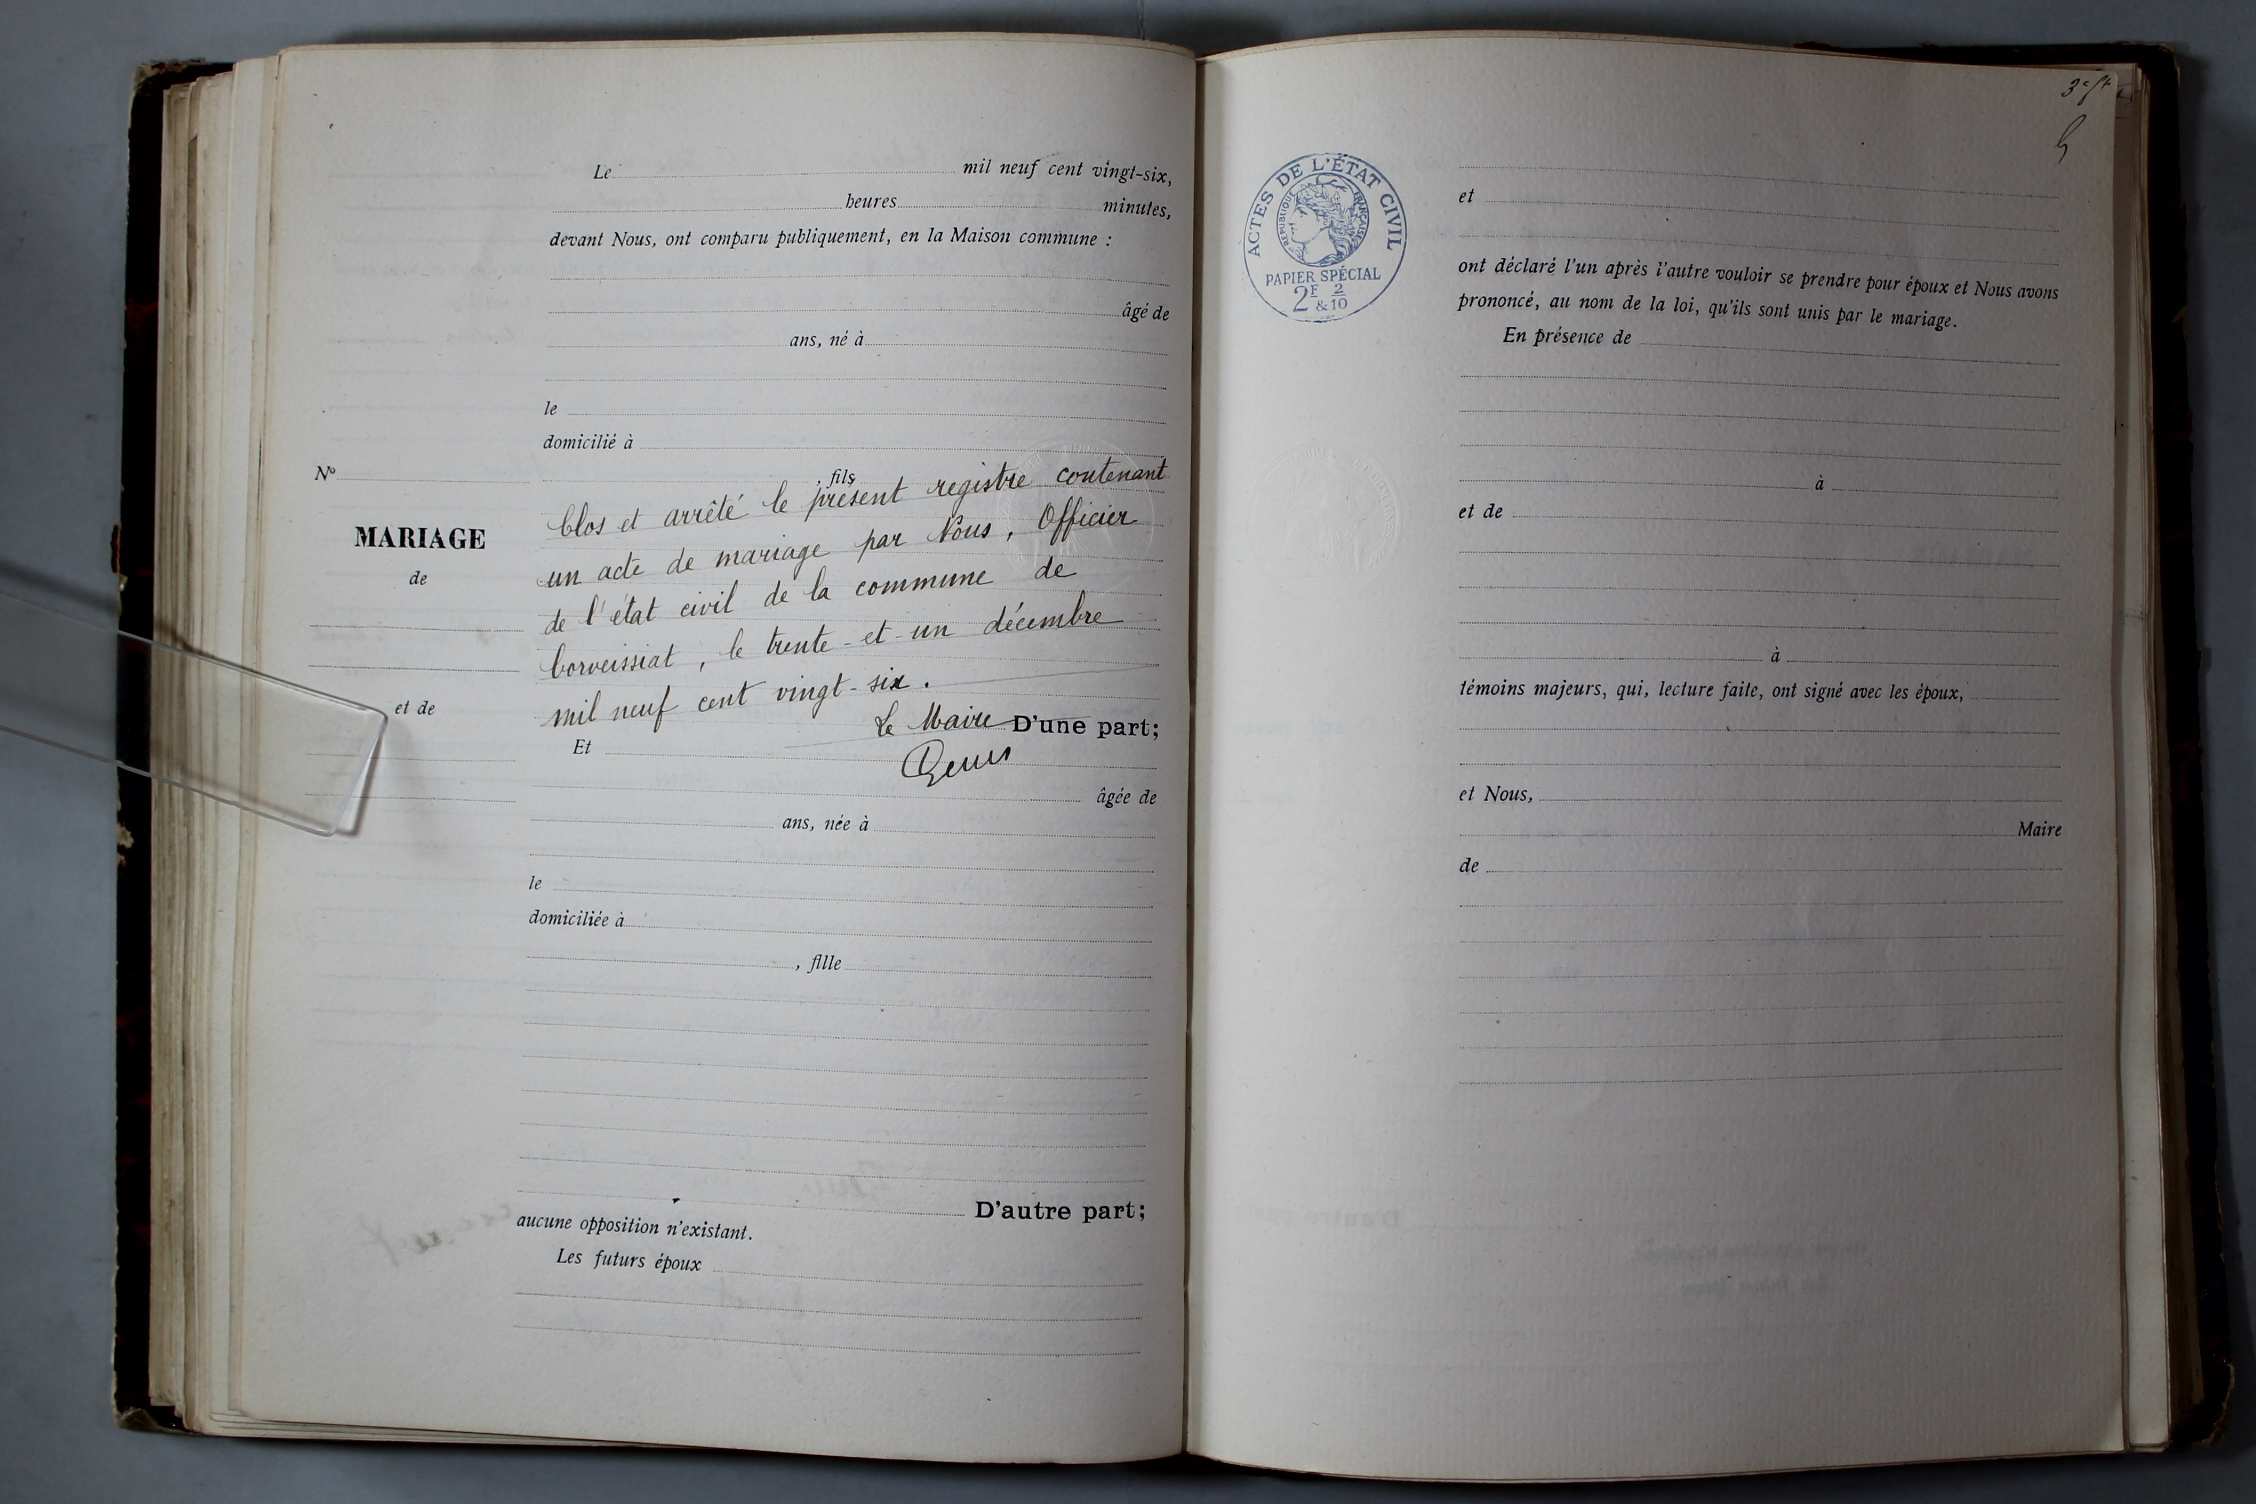 Le mil neuf cent vingt-six,
heures minutes,
devant Nous, ont comparu publiquement, en la Maison commune :
âgé de
ans, né à
le
domicilié à
No
, fils
Clos et arrêté le présent registre contenant
un acte de mariage par Nous, Officier
de l'état civil de la commune de
Corveissiat, le trente-et-un décembre
mil neuf cent vingt-six.
Le Maire D'une part;
MARIAGE
de
et de
Et
âgée de
ans, née à
le
domiciliée à
, fille
D'autre part;
aucune opposition n'existant.
Les futurs époux
ACTES DE L'ÉTAT CIVIL
RÉPUBLIQUE FRANÇAISE
PAPIER SPÉCIAL
2F & 2/10
et
ont déclaré l'un après l'autre vouloir se prendre pour époux et Nous avons
prononcé, au nom de la loi, qu'ils sont unis par le mariage.
En présence de
à
et de
à
témoins majeurs, qui, lecture faite, ont signé avec les époux,
et Nous,
Maire
de